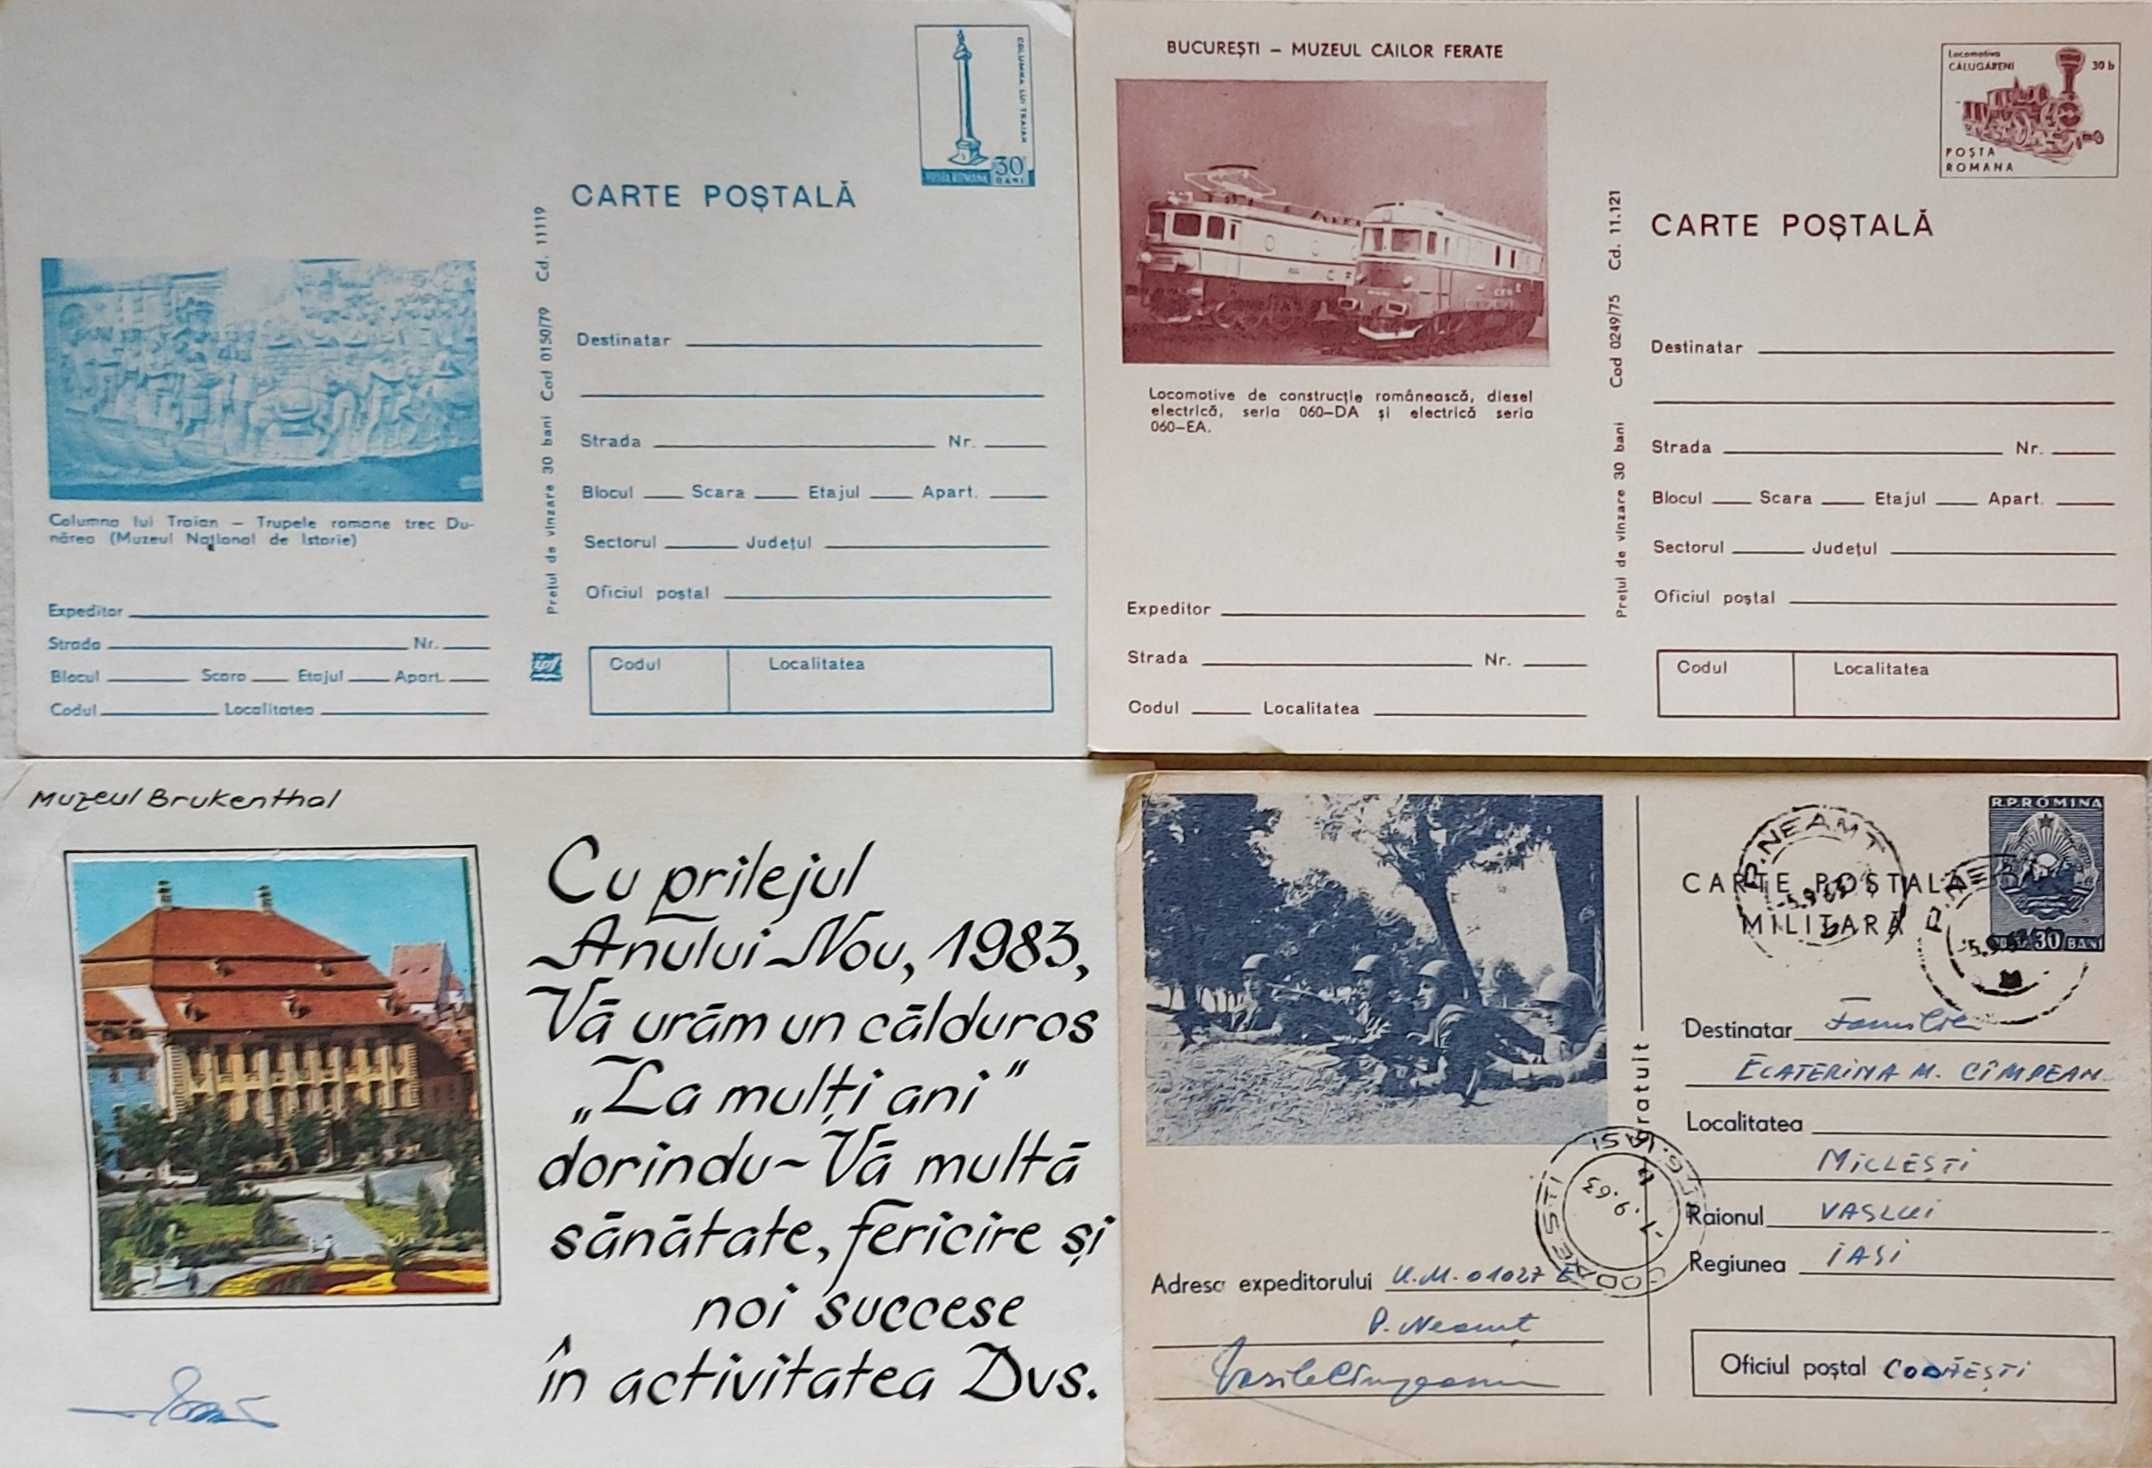 COLUMNA LUI TRAIAN
30
BANI
POSTA ROMANA
CARTE POȘTALĂ
Columna lui Traian – Trupele romane trec Du-
nărea (Muzeul Național de Istorie)
Expeditor
Strada Nr.
Blocul Scara Etajul Apart.
Codul Localitatea
Prețul de vînzare 30 bani Cod 0150/79 Cd. 11119
Destinatar
Strada Nr.
Blocul Scara Etajul Apart.
Sectorul Județul
Oficiul poștal
Codul Localitatea
BUCUREȘTI – MUZEUL CĂILOR FERATE
Locomotiva
CĂLUGĂRENI 30 b
POSTA
ROMANA
CARTE POȘTALĂ
Locomotive de construcție românească, diesel
electrică, seria 060–DA și electrică seria
060–EA.
Expeditor
Strada Nr.
Codul Localitatea
Prețul de vînzare 30 bani Cod 0249/75 Cd. 11.121
Destinatar
Strada Nr.
Blocul Scara Etajul Apart.
Sectorul Județul
Oficiul poștal
Codul Localitatea
Muzeul Brukenthal
Cu prilejul
Anului Nou, 1983,
Vă urăm un călduros
„La mulți ani"
dorindu~Vă multă
sănătate, fericire și
noi succese
în activitatea Dvs.
R.P.ROMINA
30 BANI
P. NEAMT
CARTE POȘTALĂ
MILITARĂ
gratuit
Destinatar Familia
ECATERINA M. CÎMPEAN
Localitatea
MICLEȘTI
Raionul VASLUI
Regiunea IAȘI
Oficiul poștal CODĂEȘTI
Adresa expeditorului U.M. 01027 E
P. Neamț
Vasile Cîmpeanu
REG. IASI
7.9.63